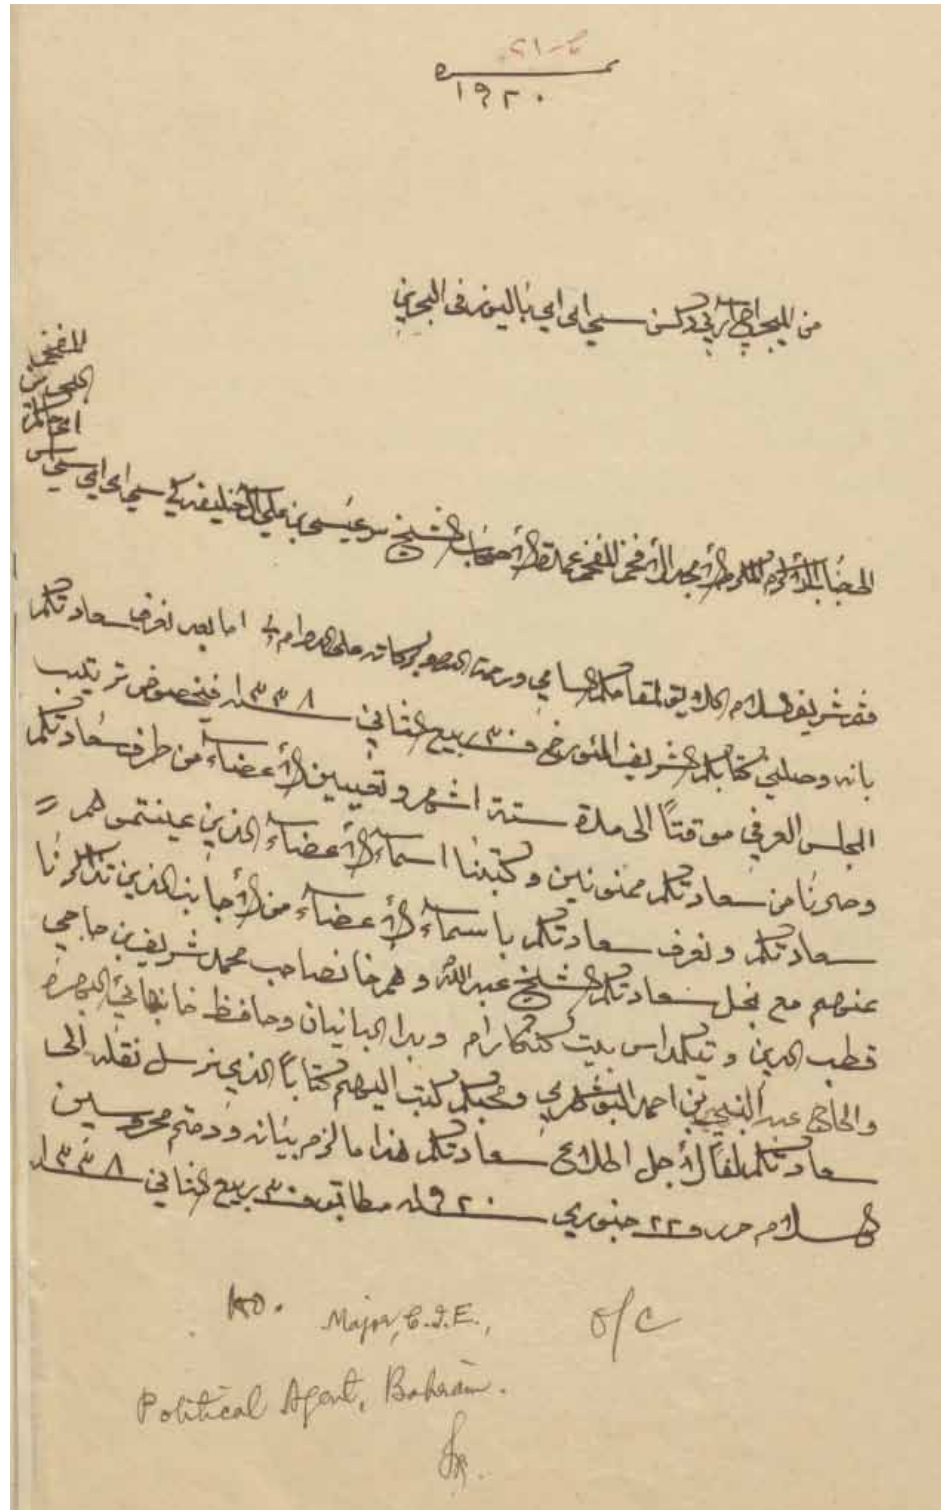 ١٩٢٠
من الميجر اچ آر پي دكسن سي اي اي باليوز في البحرين
المفخم
البحرين
حاكم
الى جناب الأكرم الأمجد الأفخم المفخم عمدة الأصحاب الشيخ سر عيسى بن علي آل خليفة كي سي اي اي سي اس
السلام لمقامكم السامي ورحمة الله وبركاته على الدوام اما بعد نعرف سعادتكم
بانه وصلني كتابكم الشريف المئورخ في ٣٠ ربيع الثاني ١٣٣٨ في خصوص ترتيب
المجلس العرفي موقتًا الى مدة ستة اشهر وتعيين الأعضاء من طرف سعادتكم
وصرنا من سعادتكم ممنونين وكتبنا اسماء الأعضاء الذين عينتموهم =
سعادتكم ونعرف سعادتكم باسماء الأعضاء من الأجانب الذين تذاكرنا
عنهم مع نجل سعادتكم الشيخ عبدالله وهم خانصاحب محمد شريف بن حاجي
قطب الدين وتيكمداس بيت گنگارام وبدا البانيان وحافظ خانبهائي البهره
والحاج عبدالنبي بن احمد البوشهري ومحبكم كتب اليهم كتاباً الذي نرسل نقله الى
سعادتكم ملفاً لأجل اطلاع سعادتكم هذا ما لزم بيانه ودمتم محروسين
والسلام حرر و ٢٢ جنوري ١٩٢٠ مطابق ٣٠ ربيع الثاني ١٣٣٨
Major, C.I.E., O/C
Political Agent, Bahrain.